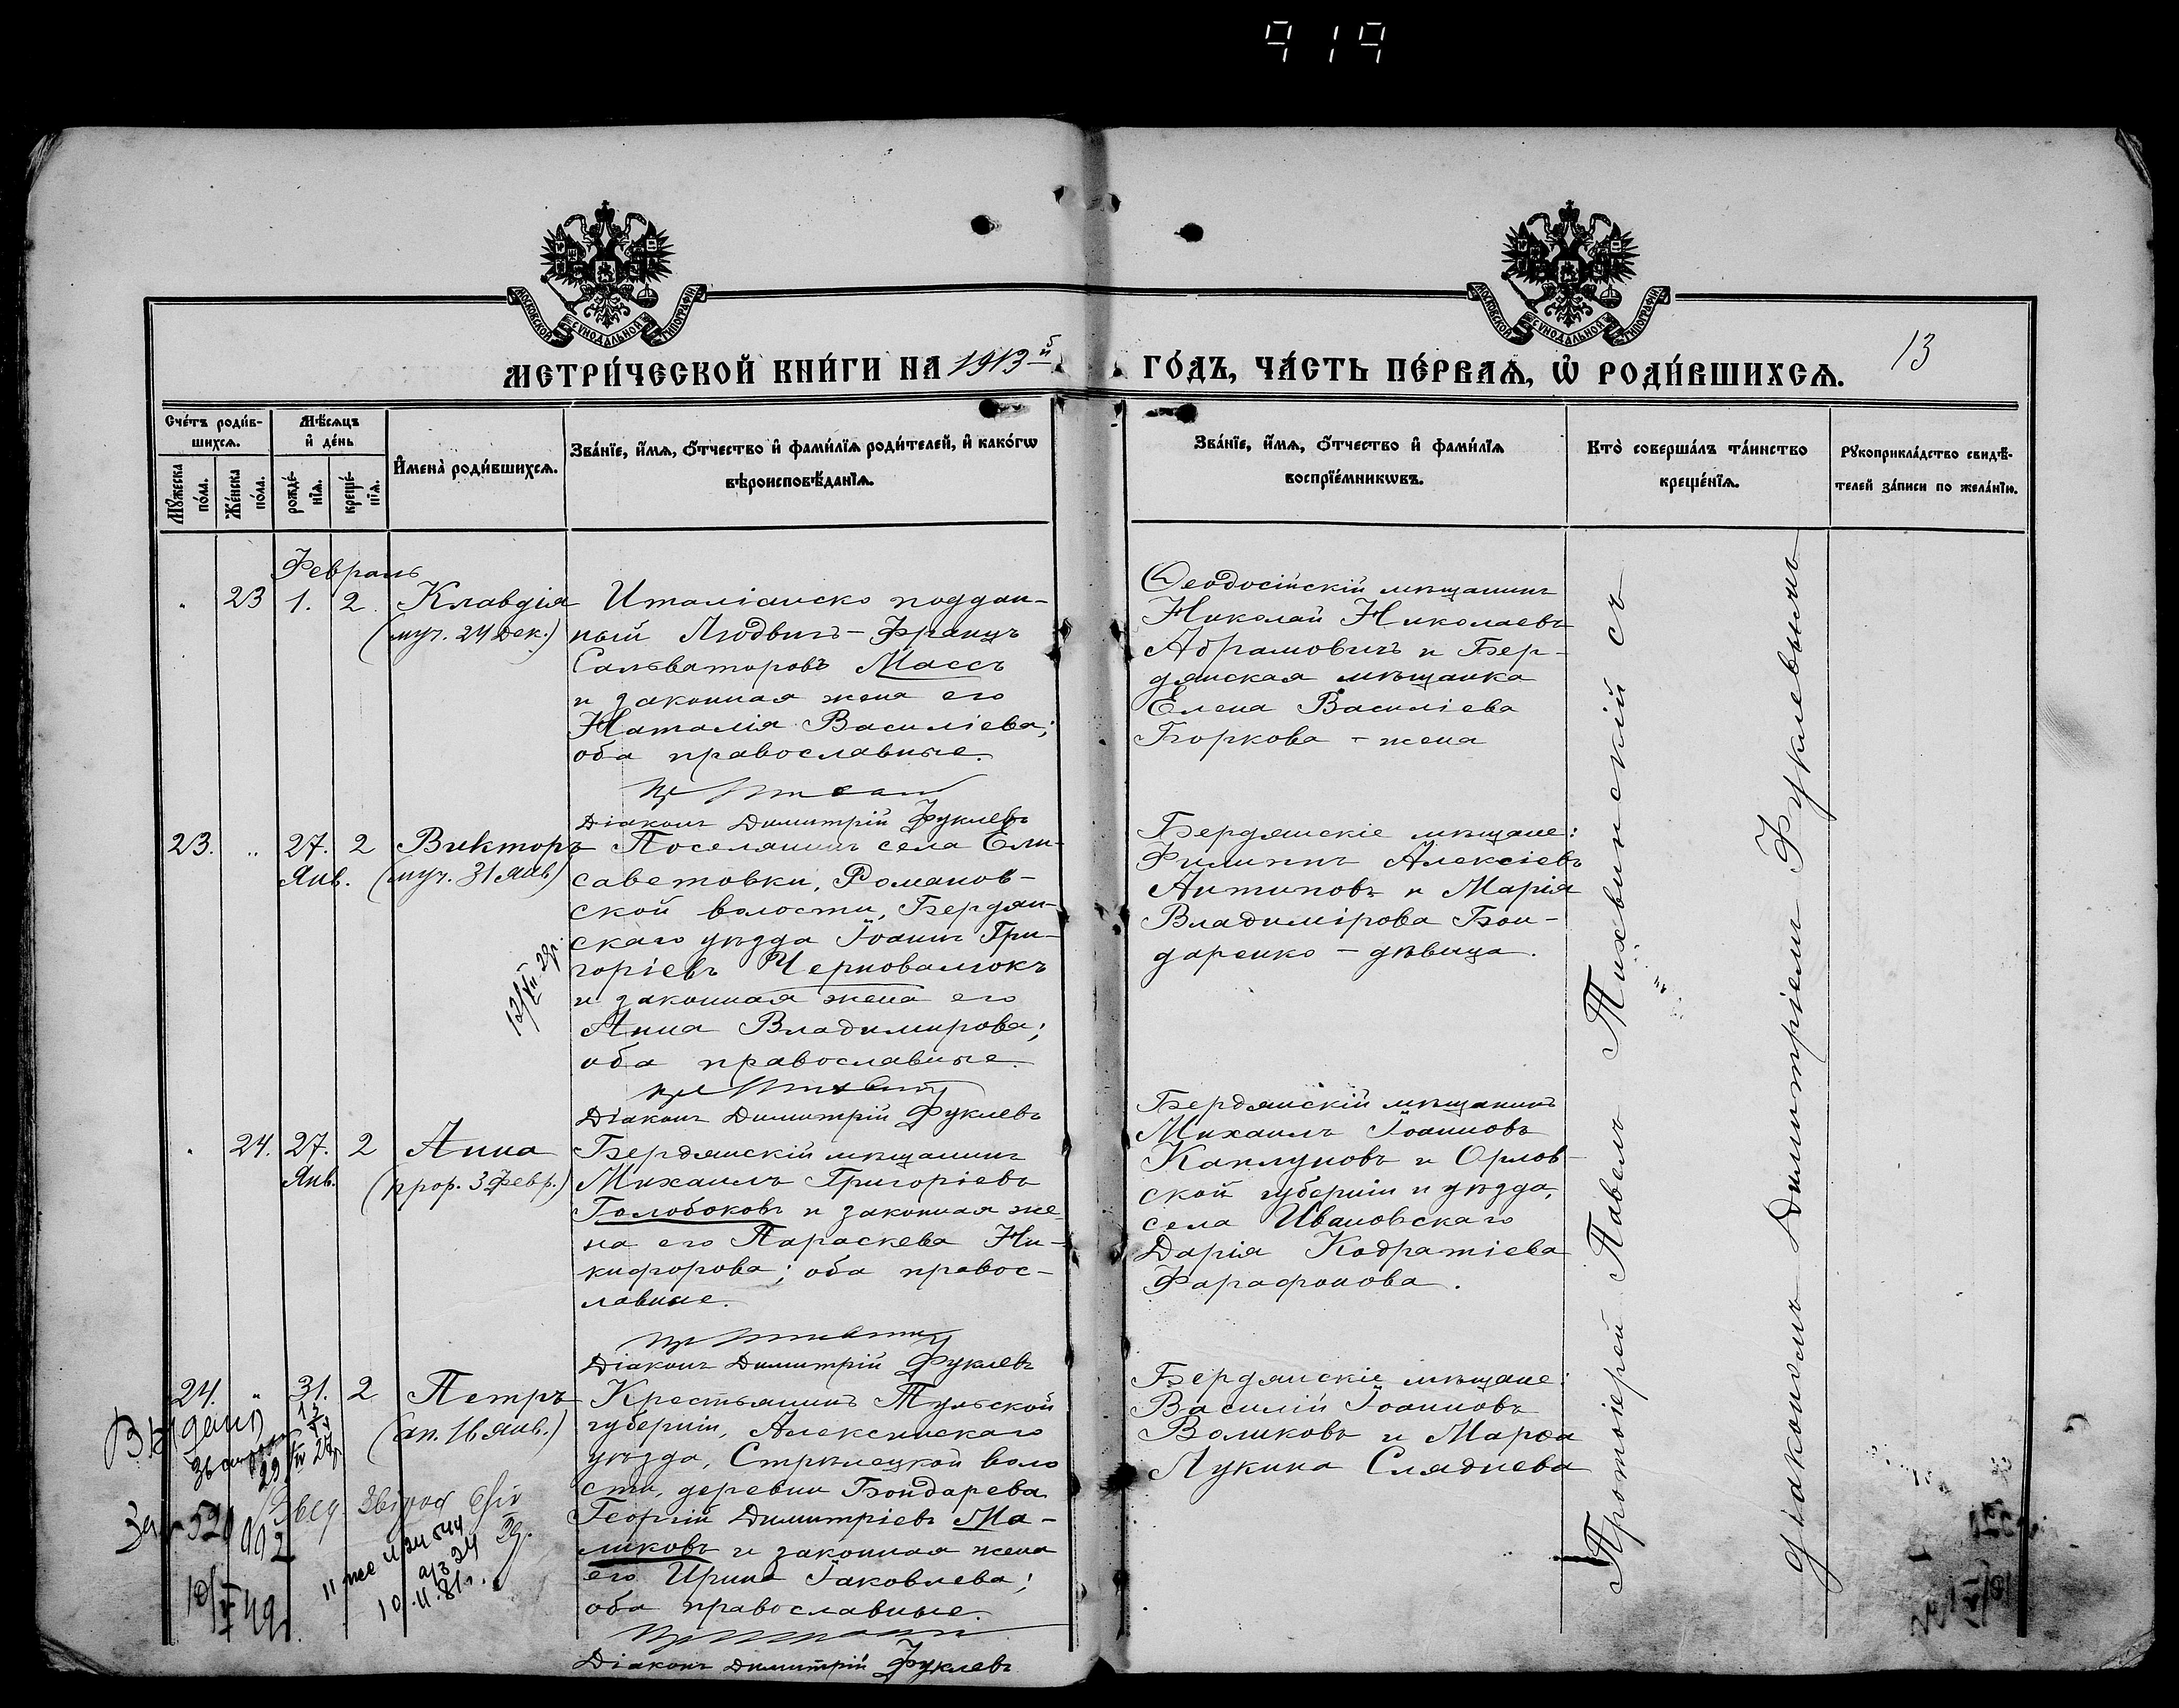 919
МОСКОВСКОЙ СУНОДАЛЬНОЙ ТИПОГРАФІИ
МОСКОВСКОЙ СУНОДАЛЬНОЙ ТИПОГРАФІИ
МЕТРИ́ЧЕСКОЙ КНИ́ГИ НА 1913й
ГО́ДЪ, ЧА́СТЬ ПЕ́РВАѦ, Ѡ҆ РОДИ́ВШИХСѦ.
13
Сче́тъ роди́в-
шихсѧ.
Мꙋ́жеска по́ла.
Же́нска по́ла.
Мѣ́сѧцъ
и҆ де́нь
рожде́-нїѧ.
креще́-нїѧ.
И҆мена̀ роди́вшихсѧ.
Зва́нїе, и҆́мѧ, ѻ҆́тчество и҆ фами́лїѧ роди́телей, и҆ како́гѡ
вѣроисповѣ́данїѧ.
Зва́нїе, и҆́мѧ, ѻ҆́тчество и҆ фами́лїѧ
воспрїе́мникѡвъ.
Кто̀ соверша́лъ та́инство
креще́нїѧ.
Рꙋкоприкла́дство свидѣ́-
телей за́писи по жела́нїю.
Февраль
23 1. 2 Клавдія
(муч. 24 Дек.)
Италіанско поддан-
ный Людвигъ-Францъ
Сальваторовъ Массъ
и законная жена его
Наталія Василіева;
оба православные.
Діаконъ Димитрій Фуклевъ
Ѳеодосійскій мѣщанинъ
Николай Николаевъ
Абрамовичъ и Бер-
дянская мѣщанка
Елена Василіева
Боркова - жена
23. " 27. 2 Викторъ
Янв. (муч. 31 Янв)
Поселянинъ села Ели-
саветовки, Романов-
ской волости, Бердян-
скаго уѣзда Іоаннъ Гри-
горіевъ Черновалюкъ
и законная жена его
Анна Владимирова;
оба православные.
Діаконъ Димитрій Фуклевъ
Бердянскіе мѣщане:
Филиппъ Алексіевъ
Антиповъ и Марія
Владимірова Бон-
даренко - дѣвица.
24. 27. 2 Анна
Янв. (прор. 3 Февр.)
Бердянскій мѣщанинъ
Михаилъ Григоріевъ
Голобоковъ и законная же-
на его Параскева Ни-
кифорова; оба правос-
лавные.
Діаконъ Димитрій Фуклевъ
Бердянскій мѣщанинъ
Михаилъ Іоанновъ
Каплуновъ и Орлов-
ской губерніи и уѣзда,
села Ивановскаго
Дарія Кодратіева
Фарафонова.
24. " 31. 2 Петръ
(ап. 16 янв.)
Крестьянинъ Тульской
губерніи, Алексинскаго
уѣзда, Стрѣлецкой воло
сти, деревни Бондарева
Георгій Димитріевъ Ма-
ликовъ и законная жена
его Ирина Іаковлева;
оба православные.
Діаконъ Димитрій Фуклевъ
Бердянскіе мѣщане:
Василій Іоанновъ
Воликовъ и Марѳа
Лукина Сляднева
Протоіерей Павелъ Тихвинскій съ
діакономъ Димитріемъ Фуклевымъ